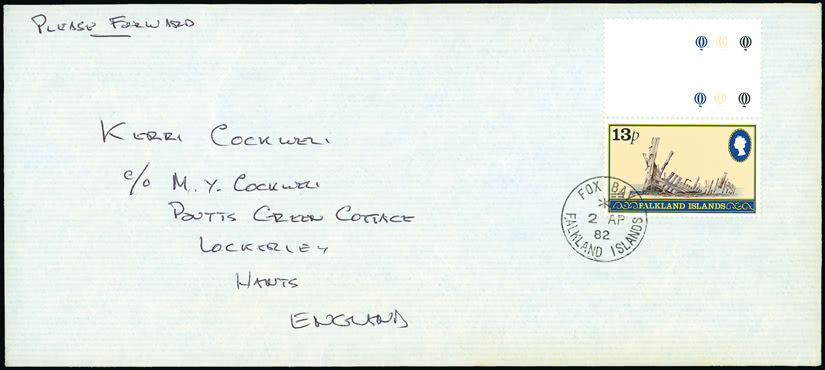 PLEASE FORWARD
KERRI COCKWELL
c/o M. Y. COCKWELL
POTTS GREEN COTTAGE
LOCKERLEY
HANTS
ENGLAND
13p
FALKLAND ISLANDS
FOX BAY
2 AP
82
FALKLAND ISLANDS